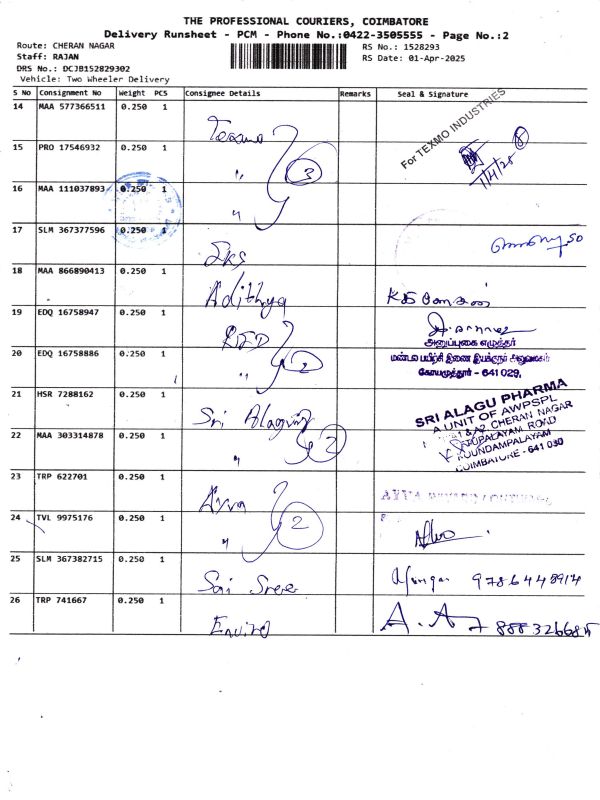 THE PROFESSIONAL COURIERS, COIMBATORE
Delivery Runsheet - PCM - Phone No.:0422-3505555 - Page No.:2
Route: CHERAN NAGAR
RS No.: 1528293
Staff: RAJAN
RS Date: 01-Apr-2025
DRS No.: DCJB152829302
Vehicle: Two Wheeler Delivery
S No Consignment No Weight PCS Consignee Details Remarks Seal & Signature
14 MAA 577366511 0.250 1 Texmo For TEXMO INDUSTRIES
15 PRO 17546932 0.250 1 " 3 1/4/25
16 MAA 111037893 0.250 1 "
17 SLM 367377596 0.250 1 SKS
18 MAA 866890413 0.250 1 Adithya
19 EDQ 16758947 0.250 1
அனுப்புகை எழுத்தர்
20 EDQ 16758886 0.250 1 " 2 மண்டல பயிற்சி இணை இயக்குநர் அலுவலகம்
கோயமுத்தூர் - 641 029.
21 HSR 7288162 0.250 1 Sri Alagu SRI ALAGU PHARMA
A UNIT OF AWPSPL
CHERAN NAGAR
22 MAA 303314878 0.250 1 " 2 ROAD
KOUNDAMPALAYAM
COIMBATORE - 641 030
23 TRP 622701 0.250 1 Ayva
24 TVL 9975176 0.250 1 " 2
25 SLM 367382715 0.250 1 Sri 9786448914
26 TRP 741667 0.250 1 Enviro A.A